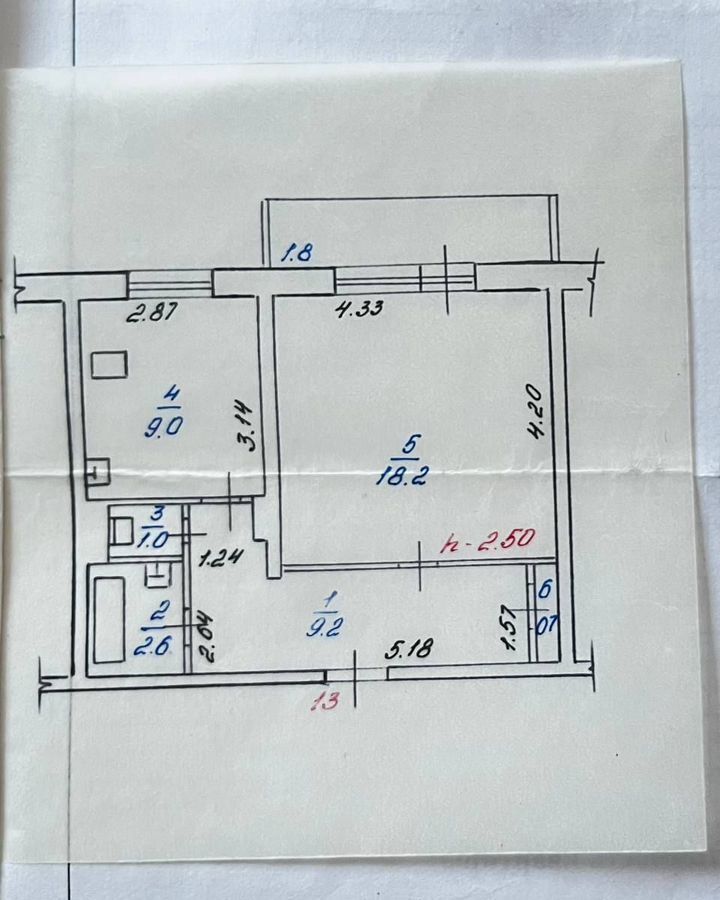 1.8
2.87
4.33
4
9.0
3.14
4.20
5
18.2
3
1.0
1.24
h-2.50
1
9.2
6
07
2
2.6
2.04
1.57
5.18
13